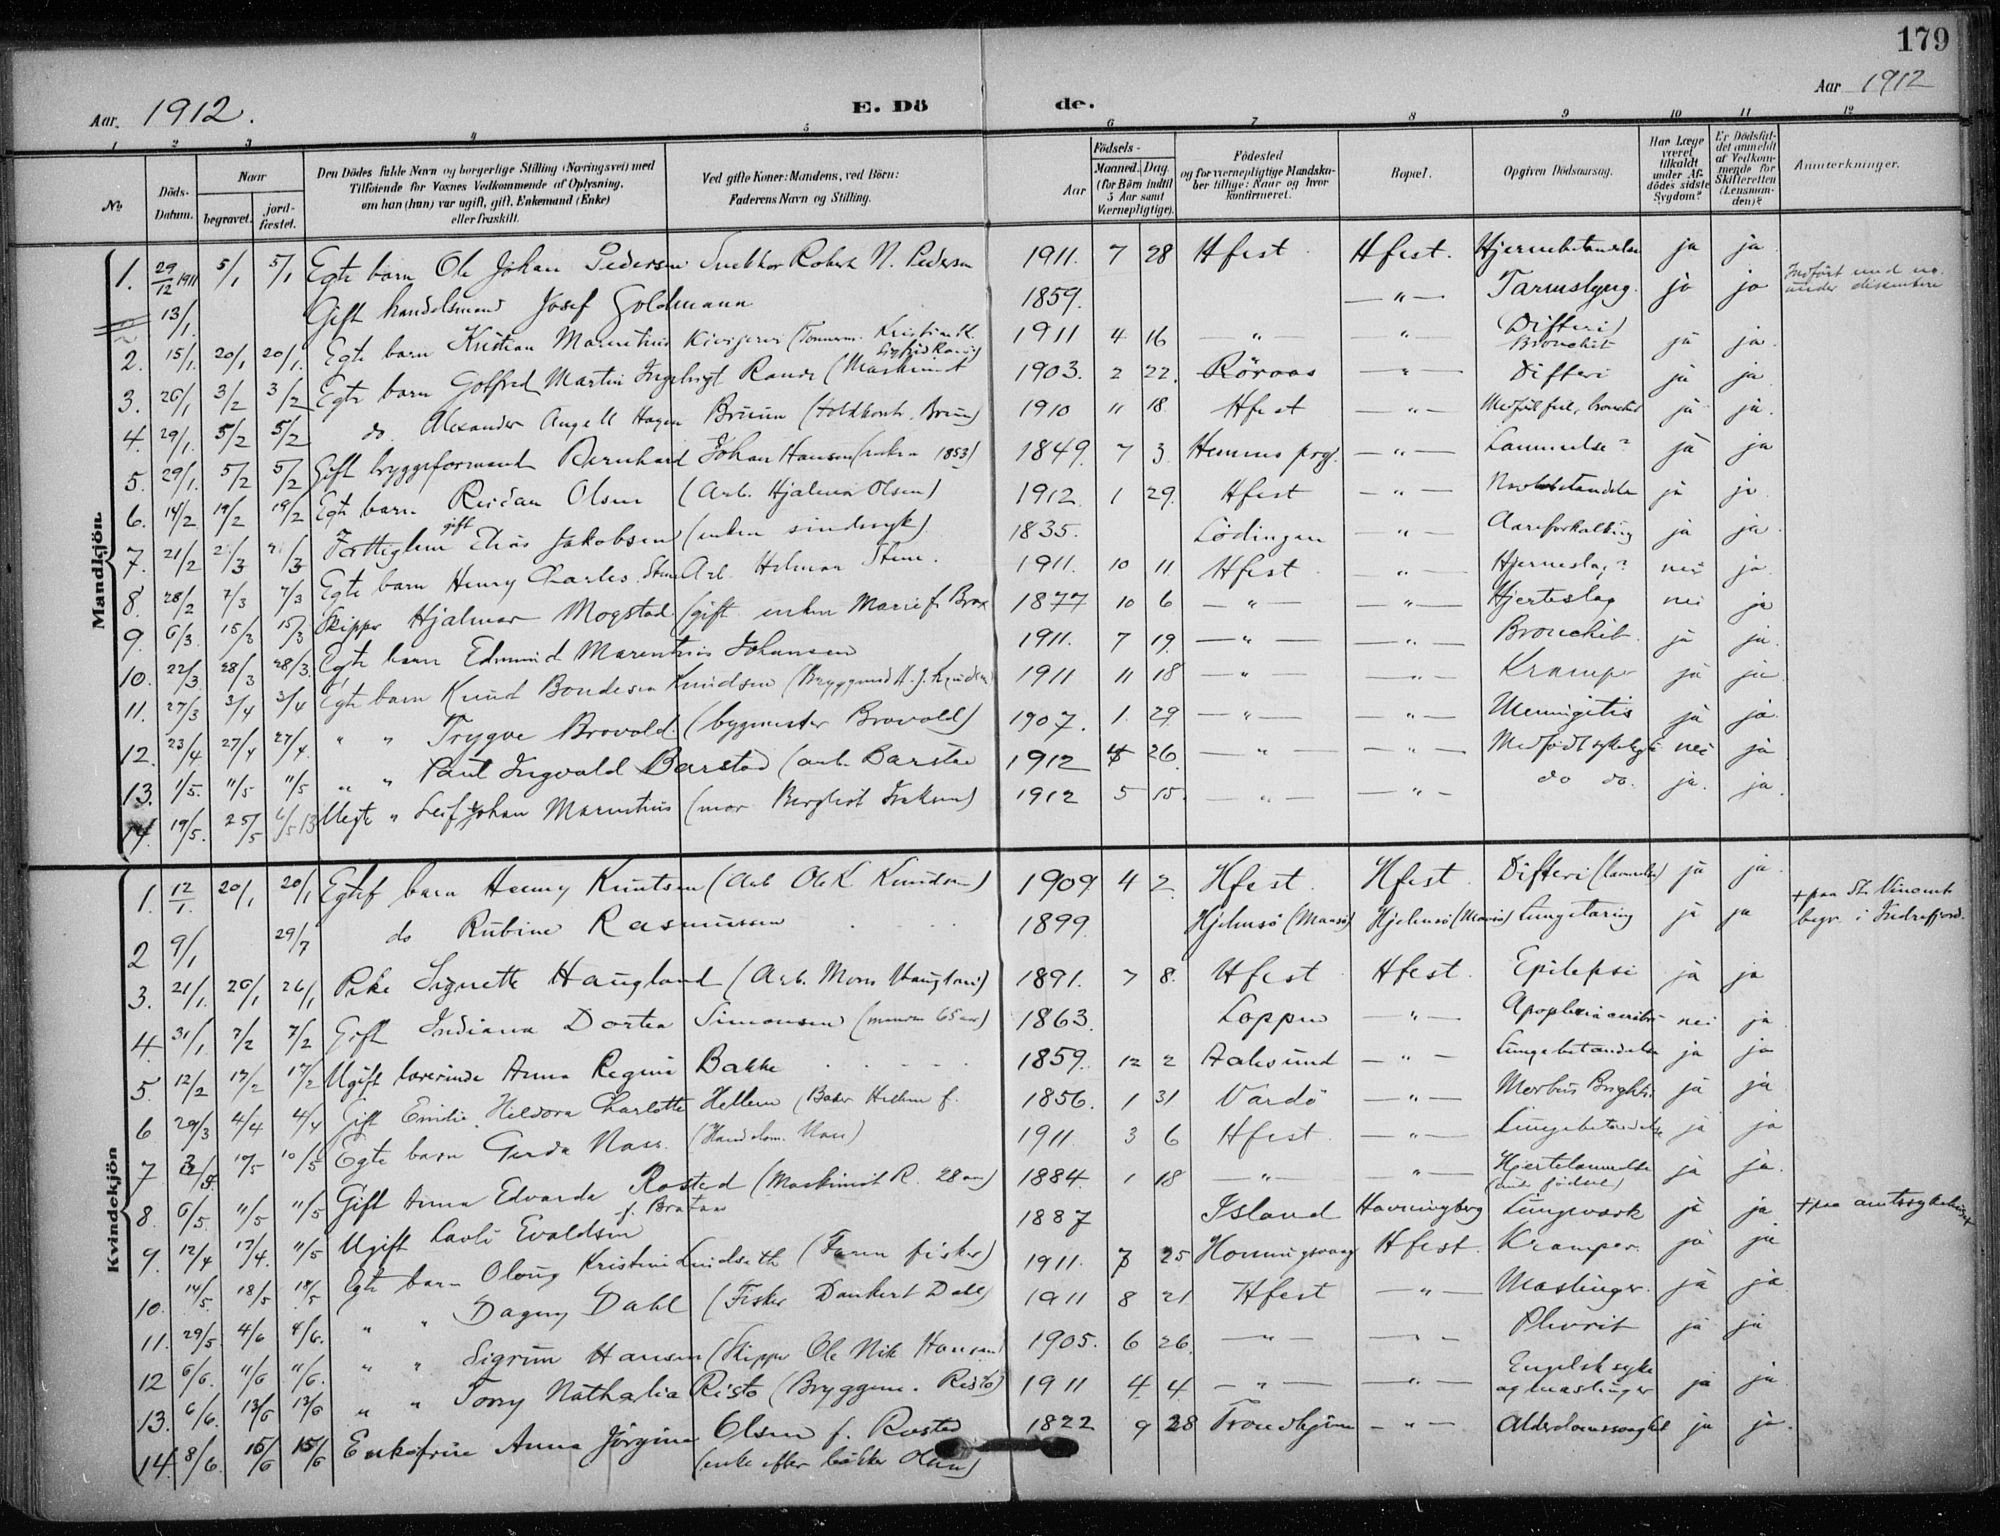 179
Aar. 1912.
E. Dö de.
Aar 1912
1 2 3 4 5 6 7 8 9 10 11 12
No.
Döds-Datum.
Naar
begravet.
jordfæstet.
Den Dödes fulde Navn og borgerlige Stilling (Næringsvei) med
Tilföiende for Voxnes Vedkommende af Oplysning,
om han (hun) var ugift, gift, Enkemand (Enke)
eller fraskilt.
Ved gifte Koner: Mandens, ved Börn:
Faderens Navn og Stilling.
Födsels-
Aar
Maaned. Dag.
(for Börn indtil
5 Aar samt
Værnepligtige).
Födested
og for værnepligtige Mandskaber tillige: Naar og hvor konfirmeret.
Bopæl.
Opgiven Dödsaarsag.
Har Læge været tilkaldt under Afdödes sidste Sygdom?
Er Dödsfaldet anmeldt af Vedkommende for Skifteretten (Lensmanden)?
Anmærkninger.
Mandkjön.
1. 29/12 1911 5/1 5/1 Egte barn Ole Johan Pedersen Snekker Robert N. Pedersen 1911. 7 28 Hfest Hfest. Hjernebetændelse ja ja
13/1. Gift handelsmand Josef Goldmann 1859. —"— Tarmslyng. ja ja Indført under dissentere
2. 15/1. 20/1 20/1. Egte barn Kristian Marentius 1911 4 16 —"— " Difteri Bronchit ja ja.
3. 26/1 3/2 3/2 Egte barn Golfred Martin Ingebrigt Rande (Maskinist 1903. 2 22. Röraas —"— Difteri ja ja
4. 29/1. 5/2 5/2 do. Alexander Angell Hagen Bruun 1910 11 18 Hfest —"— ja ja.
5. 29/1. 5/2 5/2 Gift bryggeformand Bernhard Johan Hansen (enken 1853) 1849. 7 3 Hemnes prgj. —"— Lammelse? ja ja
6. 14/2 19/2 19/2 Egte barn Reidar Olsen (Arb. Hjalmar Olsen) 1912. 1 29. Hfest —"— ja ja
7. 21/2 2/3 2/3 gift Elias Jakobsen (enken sindssyk) 1835. Lödingen —"— Aareforkalkning ja ja.
8. 28/2 7/3 7/3 Egte barn Henry Charles Sten Arb. Hilmar Stene. 1911. 10 11 Hfest —"— Hjerneslag? nei ja.
9. 6/3. 15/3 15/3 Skipper Hjalmar Mogstad (gift enken Marie f. Brox 1877 10 6 —"— —"— Hjerteslag nei ja
10. 22/3 28/3 28/3. Egte barn Edmund Marentius Johansen 1911. 7 19. —"— —"— Bronchit. ja ja.
11. 27/3 3/4 3/4 Egte barn Knud Bondesen Knudsen 1911 11 18 —"— —"— Krampe ja ja
12. 23/4 27/4 27/4. " " Trygve Brovold. (bygmester Brovold) 1907. 1. 29 —"— —"— Meningitis ja ja
13. 1/5. 11/5 11/5 " " Paul Ingvald Barstad (arb. Barstad 1912 4 26. —"— —"— nei ja
14. 19/5. 25/5 6/5 13 Uegte " Leif Johan Marentius (mor 1912 5 15. —"— —"— do do. ja. ja.
Kvindekjön
1. 12/1. 20/1 20/1 Egtef barn Henny Knutsen (Arb Ole K Knudsen) 1909 4 2 Hfest. Hfest. Difteri ja ja. + paa St. Vincent
2 9/1 29/7 do Rubine Rasmussen 1899. Hjelmsö (Maasö) Hjelmsö (Maasö) Lungetæring ja ja begr. i Indrefjord.
3. 21/1. 26/1 26/1 Pike Signette Haugland (Arb. Mons Haugland) 1891. 7 8. Hfest Hfest. Epilepsi ja ja
4. 31/1 7/2 7/2 Gift Indiana Dortea Simonsen (manden 65 aar) 1863. Loppen —"— nei ja
5. 12/2 17/2 17/2 Ugift lærerinde Anna Regine Bakke 1859. 12 2 Aalesund —"— Lungebetændelse ja ja
6 29/3 4/4 4/4 Gift Emilie Hildora Charlotte Hellem (Baker Hellem f. 1856. 1 31 Vardö —"— Morbus Brightii ja ja
7 3/5. 10/5 10/5 Egte barn Gerda Nass. (Handelsm. Nass) 1911. 3 6 Hfest. —"— Lungebetændelse ja ja
8. 6/5. 11/5 11/5 Gift Anna Edvarda Rosted (Maskinist R. 28 aar) 1884. 1 18 —"— —"— Hjertelammelse ja ja.
9. 12/4 17/4. 11/5 Ugift Lavli Evaldsen 1887 Island Havningberg Lungevæxk ja ja + paa amtssykehuset
10. 14/5. 18/5 18/5 Egte barn Oloug Kristine Lindseth 1911. 7 25 Honningsvaag Hfest. Kramper. ja ja
11. 29/5. 4/6 4/6. " " Dagny Dahl (Fisker Dankert Dahl) 1911 8 21 Hfest —"— Mæslinger. ja ja
12 6/6. 11/6 11/6. " " Sigrun Hansen (Skipper Ole Nik Hansen) 1905. 6 26. —"— —"— Plevrit ja ja
13. 6/6. 13/6 13/6 " " Torry Nathalia Risto (Bryggem. Risto) 1911 4. 4 —"— —"— Engelsk syke og mæslinger ja ja.
14. 8/6. 15/6 15/6 Enkefrue Anna Jörgine Olsen f. Rosted 1822 9 28 Trondhjem —"— Alderdomssvaghet ja ja.
(enke efter bakker Olsen)